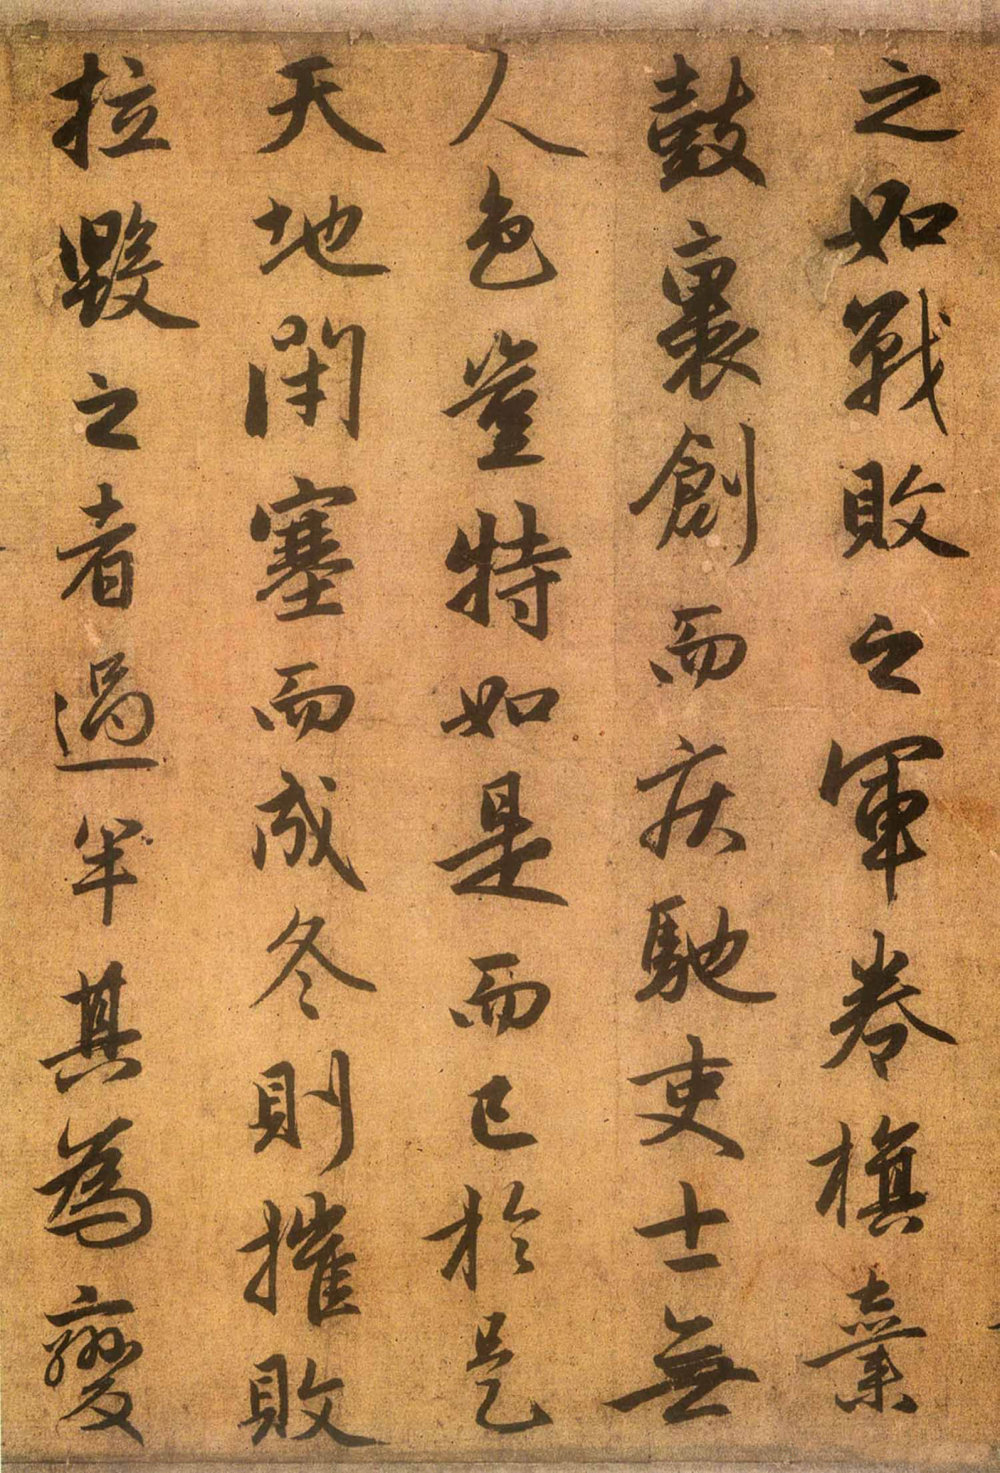 之如戰敗之軍卷旗棄
鼓裹創而疾馳吏士無
人色豈特如是而已於是
天地閉塞而成冬則摧敗
拉毀之者過半其為變